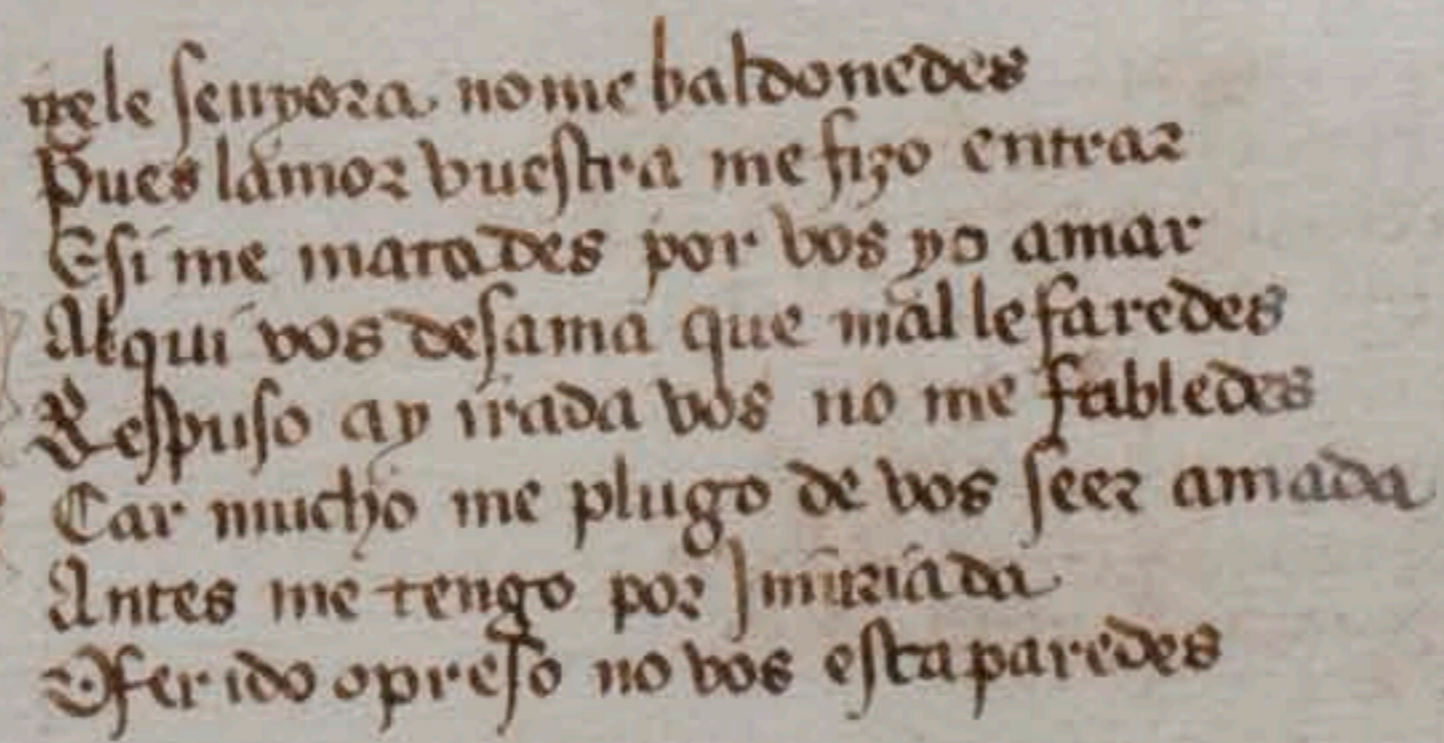 senyora nome baldonedes
Pues lamor vuestra me fizo entrar
Esi me matades por vos yo amar
Alqui vos desama que mal le faredes
Respuso ay irada vos no me fabledes
Car mucho me plugo de vos seer amada
Antes me tengo por Iniuriada
Oferido opreso no vos estaparedes